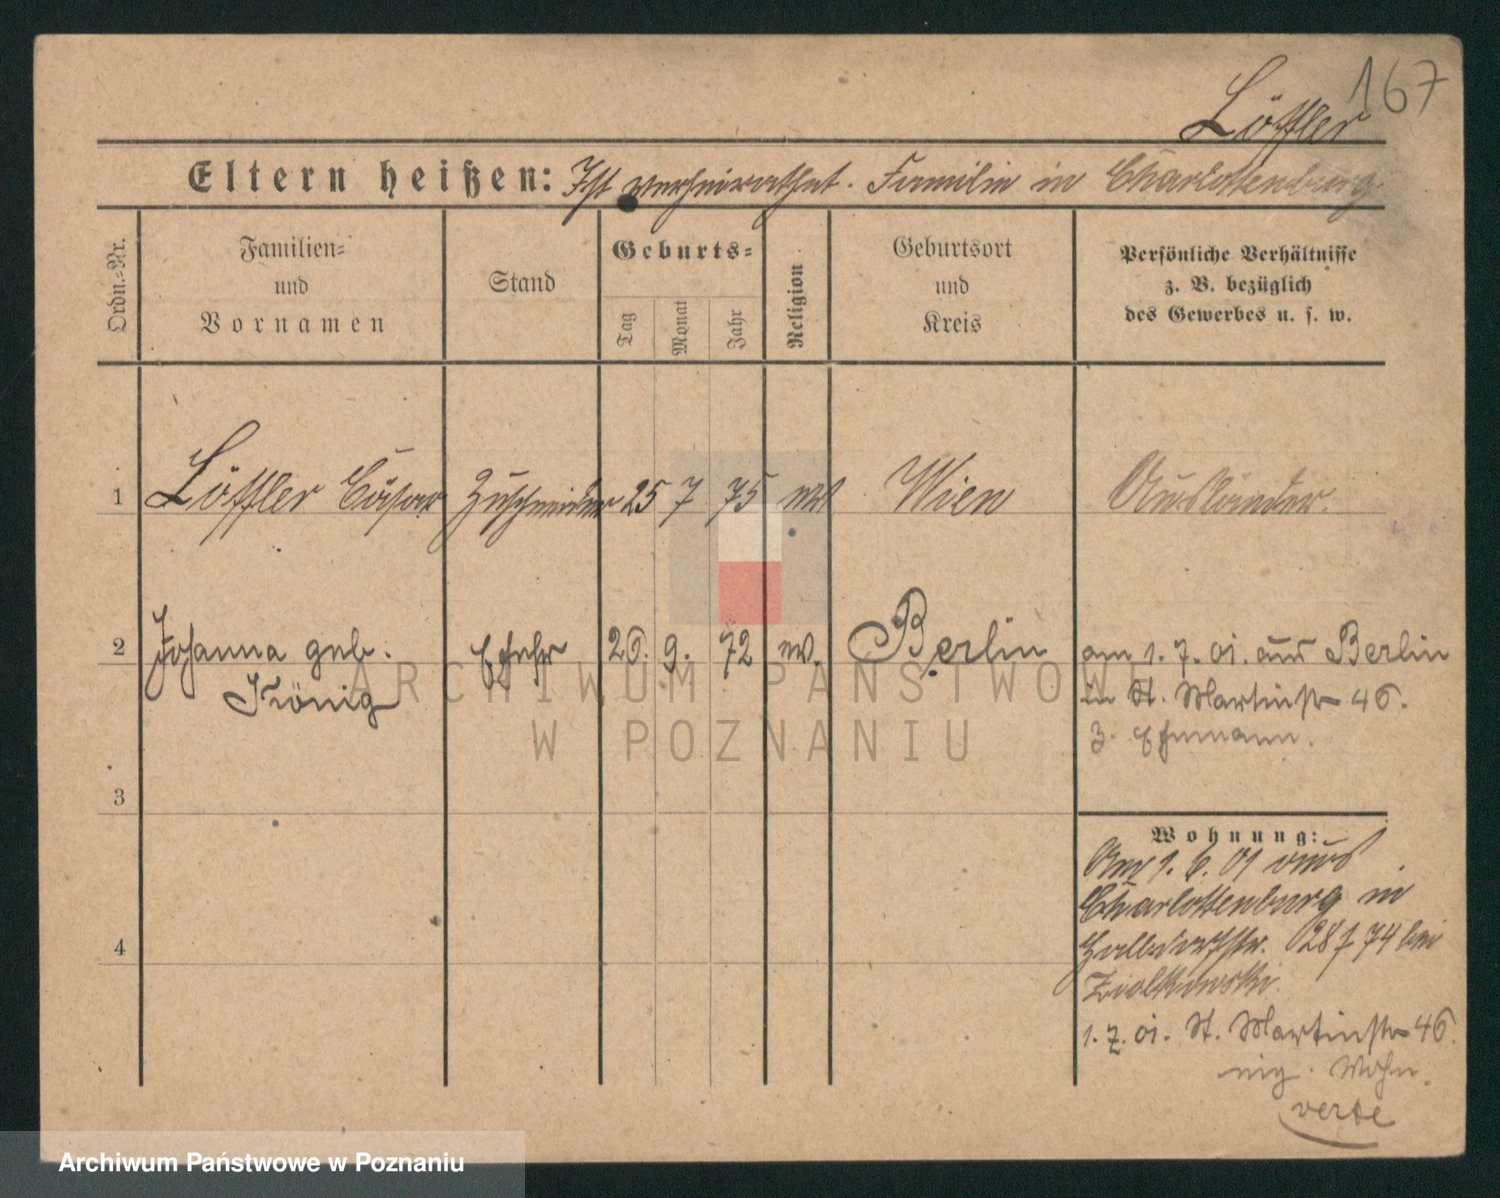 167
Löffler
Eltern heißen: Ist verheirathet. Familie in Charlottenburg
Ordn.-Nr.
Familien-
und
Vornamen
Stand
Geburts-
Tag
Monat
Jahr
Religion
Geburtsort
und
Kreis
Persönliche Verhältnisse
z. B. bezüglich
des Gewerbes u. s. w.
1 Löffler Cäsar Zuschneider 25 7 75 Wien Ausländer.
2 Johanna geb. Ehefr 26. 9. 72 ev. Berlin am 1. 7. 01. aus Berlin
König in St. Martinstr 46.
z. Ehemann.
3
Wohnung:
Am 1. 6. 01 aus
Charlottenburg in
4
Halbdorfstr. 28 74 bei
Ziolkowski.
1. 7. 01. St. Martinstr 46.
eig. Wohn.
verte
ARCHIWUM PAŃSTWOWE
W POZNANIU
Archiwum Państwowe w Poznaniu